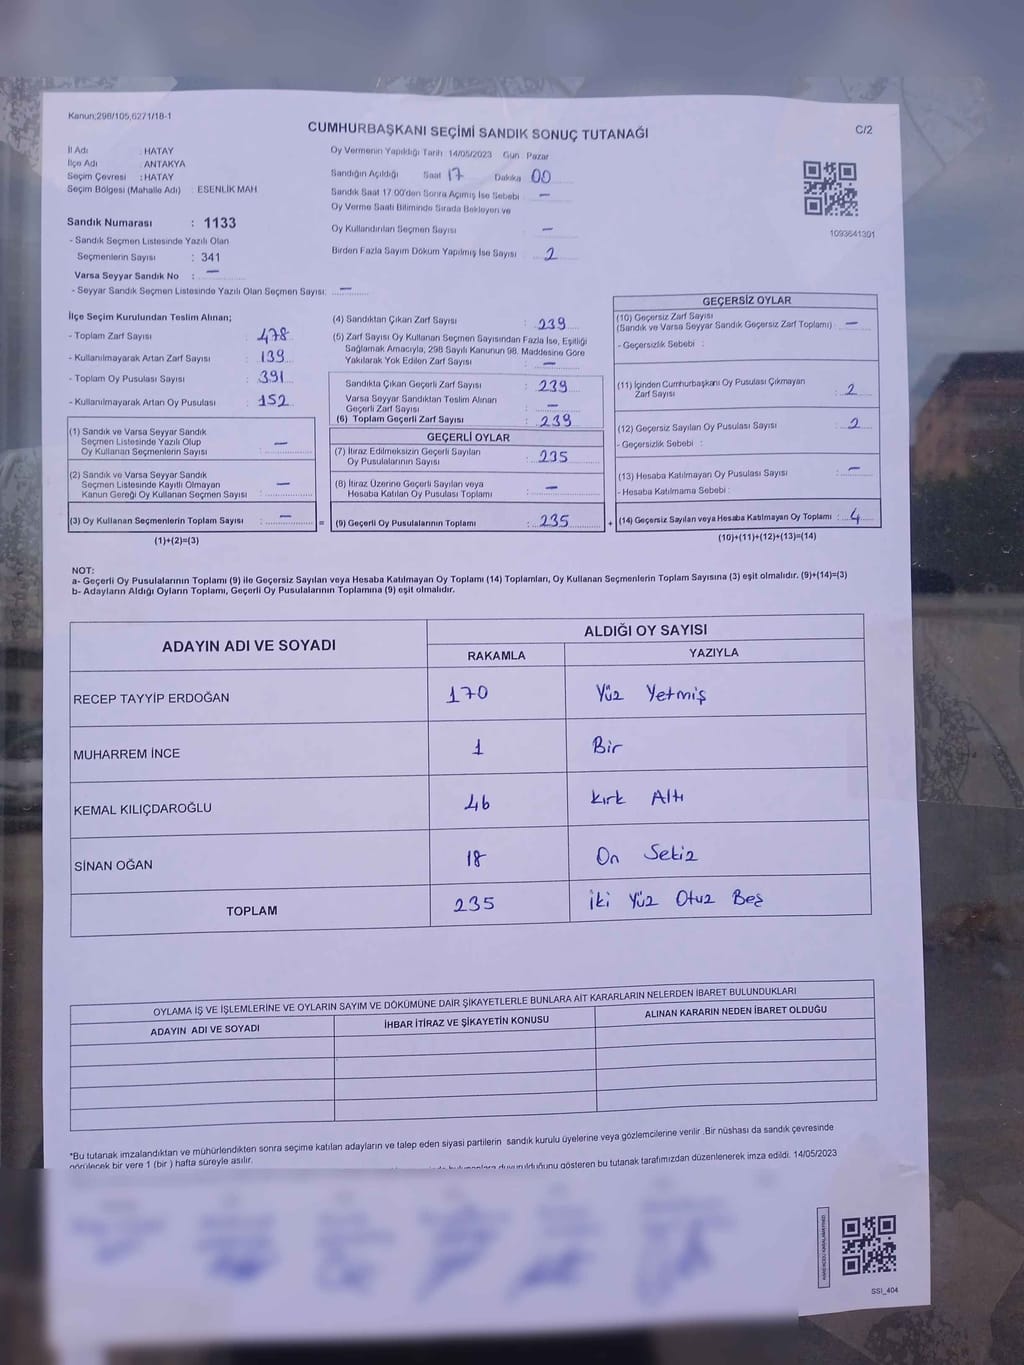 Kanun:298/105,6271/18-1
CUMHURBAŞKANI SEÇİMİ SANDIK SONUÇ TUTANAĞI
C/2
İl Adı : HATAY
İlçe Adı : ANTAKYA
Seçim Çevresi : HATAY
Seçim Bölgesi (Mahalle Adı) : ESENLİK MAH
Oy Vermenin Yapıldığı Tarih: 14/05/2023 Gün : Pazar
Sandığın Açıldığı Saat 17 Dakika 00
Sandık Saat 17.00'den Sonra Açımış İse Sebebi : —
Oy Verme Saati Bitiminde Sırada Bekleyen ve
Oy Kullandırılan Seçmen Sayısı —
Birden Fazla Sayım Döküm Yapılmış İse Sayısı : 2
1093641301
Sandık Numarası : 1133
- Sandık Seçmen Listesinde Yazılı Olan
Seçmenlerin Sayısı : 341
Varsa Seyyar Sandık No : —
- Seyyar Sandık Seçmen Listesinde Yazılı Olan Seçmen Sayısı: —
İlçe Seçim Kurulundan Teslim Alınan;
- Toplam Zarf Sayısı : 478
- Kullanılmayarak Artan Zarf Sayısı : 139
- Toplam Oy Pusulası Sayısı : 391
- Kullanılmayarak Artan Oy Pusulası : 152
(1) Sandık ve Varsa Seyyar Sandık
Seçmen Listesinde Yazılı Olup
Oy Kullanan Seçmenlerin Sayısı : —
(2) Sandık ve Varsa Seyyar Sandık
Seçmen Listesinde Kayıtlı Olmayan
Kanun Gereği Oy Kullanan Seçmen Sayısı : —
(3) Oy Kullanan Seçmenlerin Toplam Sayısı : —
(1)+(2)=(3)
(4) Sandıktan Çıkan Zarf Sayısı : 239
(5) Zarf Sayısı Oy Kullanan Seçmen Sayısından Fazla İse, Eşitliği
Sağlamak Amacıyla, 298 Sayılı Kanunun 98. Maddesine Göre
Yakılarak Yok Edilen Zarf Sayısı : —
Sandıkta Çıkan Geçerli Zarf Sayısı : 239
Varsa Seyyar Sandıktan Teslim Alınan
Geçerli Zarf Sayısı : —
(6) Toplam Geçerli Zarf Sayısı : 239
GEÇERLİ OYLAR
(7) İtiraz Edilmeksizin Geçerli Sayılan
Oy Pusulalarının Sayısı : 235
(8) İtiraz Üzerine Geçerli Sayılan veya
Hesaba Katılan Oy Pusulası Toplamı : —
= (9) Geçerli Oy Pusulalarının Toplamı : 235
GEÇERSİZ OYLAR
(10) Geçersiz Zarf Sayısı
(Sandık ve Varsa Seyyar Sandık Geçersiz Zarf Toplamı) : —
- Geçersizlik Sebebi :
(11) İçinden Cumhurbaşkanı Oy Pusulası Çıkmayan
Zarf Sayısı : 2
(12) Geçersiz Sayılan Oy Pusulası Sayısı : 2
- Geçersizlik Sebebi :
(13) Hesaba Katılmayan Oy Pusulası Sayısı : —
- Hesaba Katılmama Sebebi :
+ (14) Geçersiz Sayılan veya Hesaba Katılmayan Oy Toplamı : 4
(10)+(11)+(12)+(13)=(14)
NOT:
a- Geçerli Oy Pusulalarının Toplamı (9) ile Geçersiz Sayılan veya Hesaba Katılmayan Oy Toplamı (14) Toplamları, Oy Kullanan Seçmenlerin Toplam Sayısına (3) eşit olmalıdır. (9)+(14)=(3)
b- Adayların Aldığı Oyların Toplamı, Geçerli Oy Pusulalarının Toplamına (9) eşit olmalıdır.
ADAYIN ADI VE SOYADI
ALDIĞI OY SAYISI
RAKAMLA YAZIYLA
RECEP TAYYİP ERDOĞAN 170 Yüz Yetmiş
MUHARREM İNCE 1 Bir
KEMAL KILIÇDAROĞLU 46 Kırk Altı
SİNAN OĞAN 18 On Sekiz
TOPLAM 235 İki Yüz Otuz Beş
OYLAMA İŞ VE İŞLEMLERİNE VE OYLARIN SAYIM VE DÖKÜMÜNE DAİR ŞİKAYETLERLE BUNLARA AİT KARARLARIN NELERDEN İBARET BULUNDUKLARI
ADAYIN ADI VE SOYADI İHBAR İTİRAZ VE ŞİKAYETİN KONUSU ALINAN KARARIN NEDEN İBARET OLDUĞU
*Bu tutanak imzalandıktan ve mühürlendikten sonra seçime katılan adayların ve talep eden siyasi partilerin sandık kurulu üyelerine veya gözlemcilerine verilir .Bir nüshası da sandık çevresinde
görülecek bir yere 1 (bir ) hafta süreyle asılır.
duyurulduğunu gösteren bu tutanak tarafımızdan düzenlenerek imza edildi. 14/05/2023
SSI_404